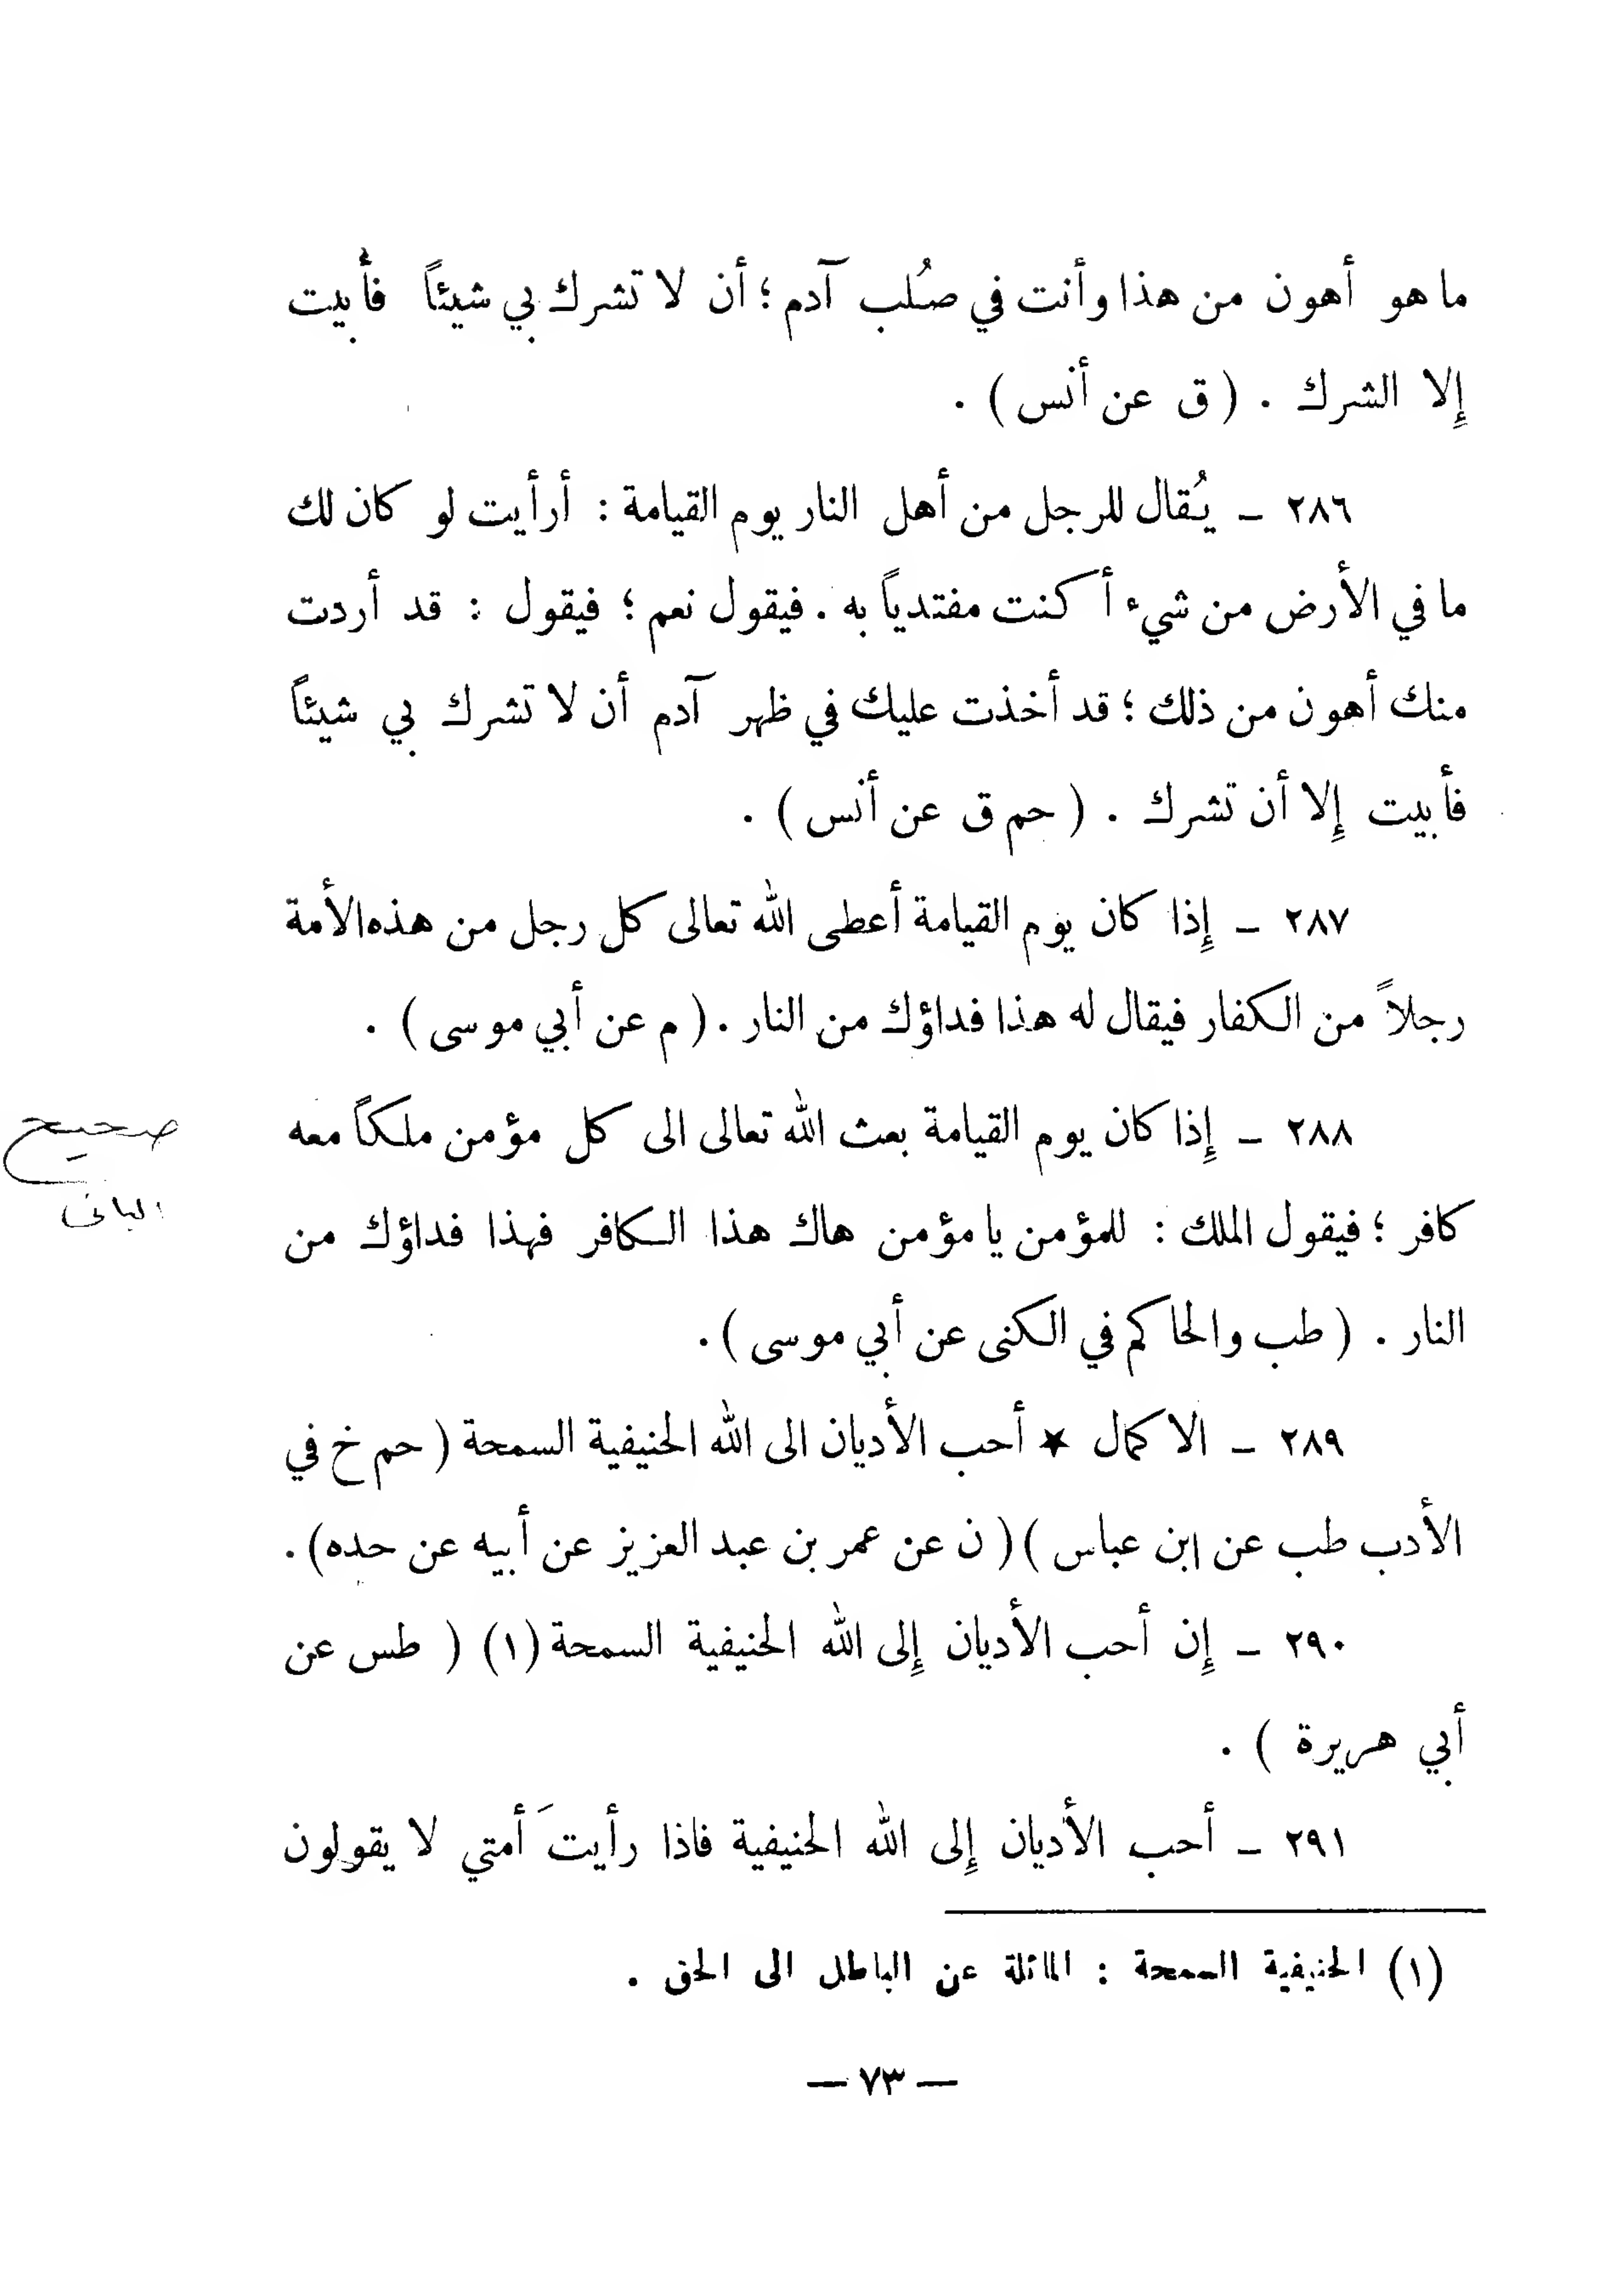 ما هو أهون من هذا وأنت في صُلب آدم ؛ أن لا تشرك بي شيئاً فأبيت
إِلا الشرك . ( ق عن أنس ) .
٢٨٦ – يُقال للرجل من أهل النار يوم القيامة : أرأيت لو كان لك
ما في الأرض من شيء أكنت مفتدياً به . فيقول نعم ؛ فيقول : قد أردت
منك أهون من ذلك ؛ قد أخذت عليك في ظهر آدم أن لا تشرك بي شيئاً
فأبيت إِلا أن تشرك . ( حم ق عن أنس ) .
٢٨٧ – إِذا كان يوم القيامة أعطى الله تعالى كل رجل من هذه الأمة
رجلاً من الكفار فيقال له هذا فداؤك من النار . ( م عن أبي موسى ) .
٢٨٨ – إِذا كان يوم القيامة بعث الله تعالى الى كل مؤمن ملكاً معه
صحيح
كافر ؛ فيقول الملك : للمؤمن يا مؤمن هاك هذا الكافر فهذا فداؤك من
البانى
النار . ( طب والحاكم في الكنى عن أبي موسى ) .
٢٨٩ – الاكمال ★ أحب الأديان الى الله الحنيفية السمحة ( حم خ في
الأدب طب عن ابن عباس ) ( ن عن عمر بن عبد العزيز عن أبيه عن حده ) .
٢٩٠ – إِن أحب الأديان إِلى الله الحنيفية السمحة (١) ( طس عن
أبي هريرة ) .
٢٩١ – أحب الأديان إِلى الله الحنيفية فاذا رأيتَ أمتي لا يقولون
(١) الحنيفية السمحة : المائلة عن الباطل الى الحق .
— ٧٣ —